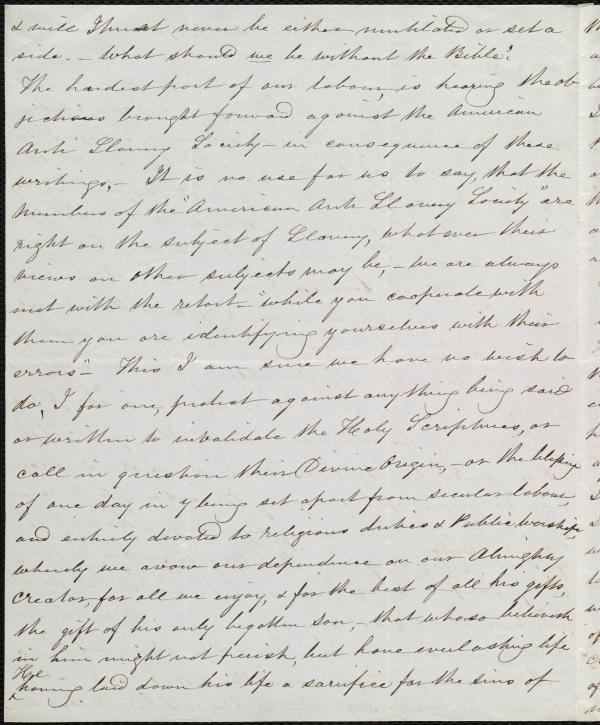 & will I trust never be either mutilated or set a
side. - What should we be without the Bible?
The hardest part of our labour, is hearing the ob
jections brought forward against the American
Anti Slavery Society - in consequence of these
writings, - It is no use for us to say, that the
Members of the "American Anti Slavery Society" are
right on the subject of Slavery, whatever their
views on other subjects may be, - we are always
met with the retort - "while you cooperate with
them you are identifying yourselves with their
errors" - This I am sure we have no wish to
do, I for one, protest against anything being said
or written to invalidate the Holy Scriptures, or
call in question their Divine Origin, - or the blessing
of one day in 7 being set apart from secular labour,
and entirely devoted to religious duties & Public Worship
whereby we avow our dependence on our Almighty
Creator, for all we enjoy, & for the best of all his gifts,
the gift of his only begotten Son, - that whoso believeth
in him might not perish, but have everlasting life
He
having laid down his life a sacrifice for the sins of